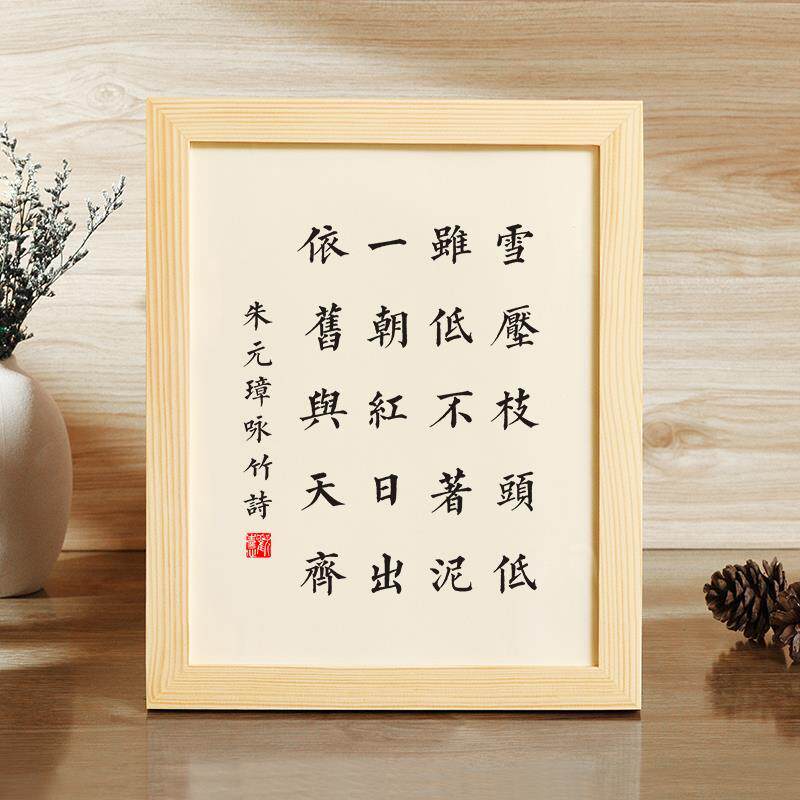 雪壓枝頭低
雖低不著泥
一朝紅日出
依舊與天齊
朱元璋咏竹詩